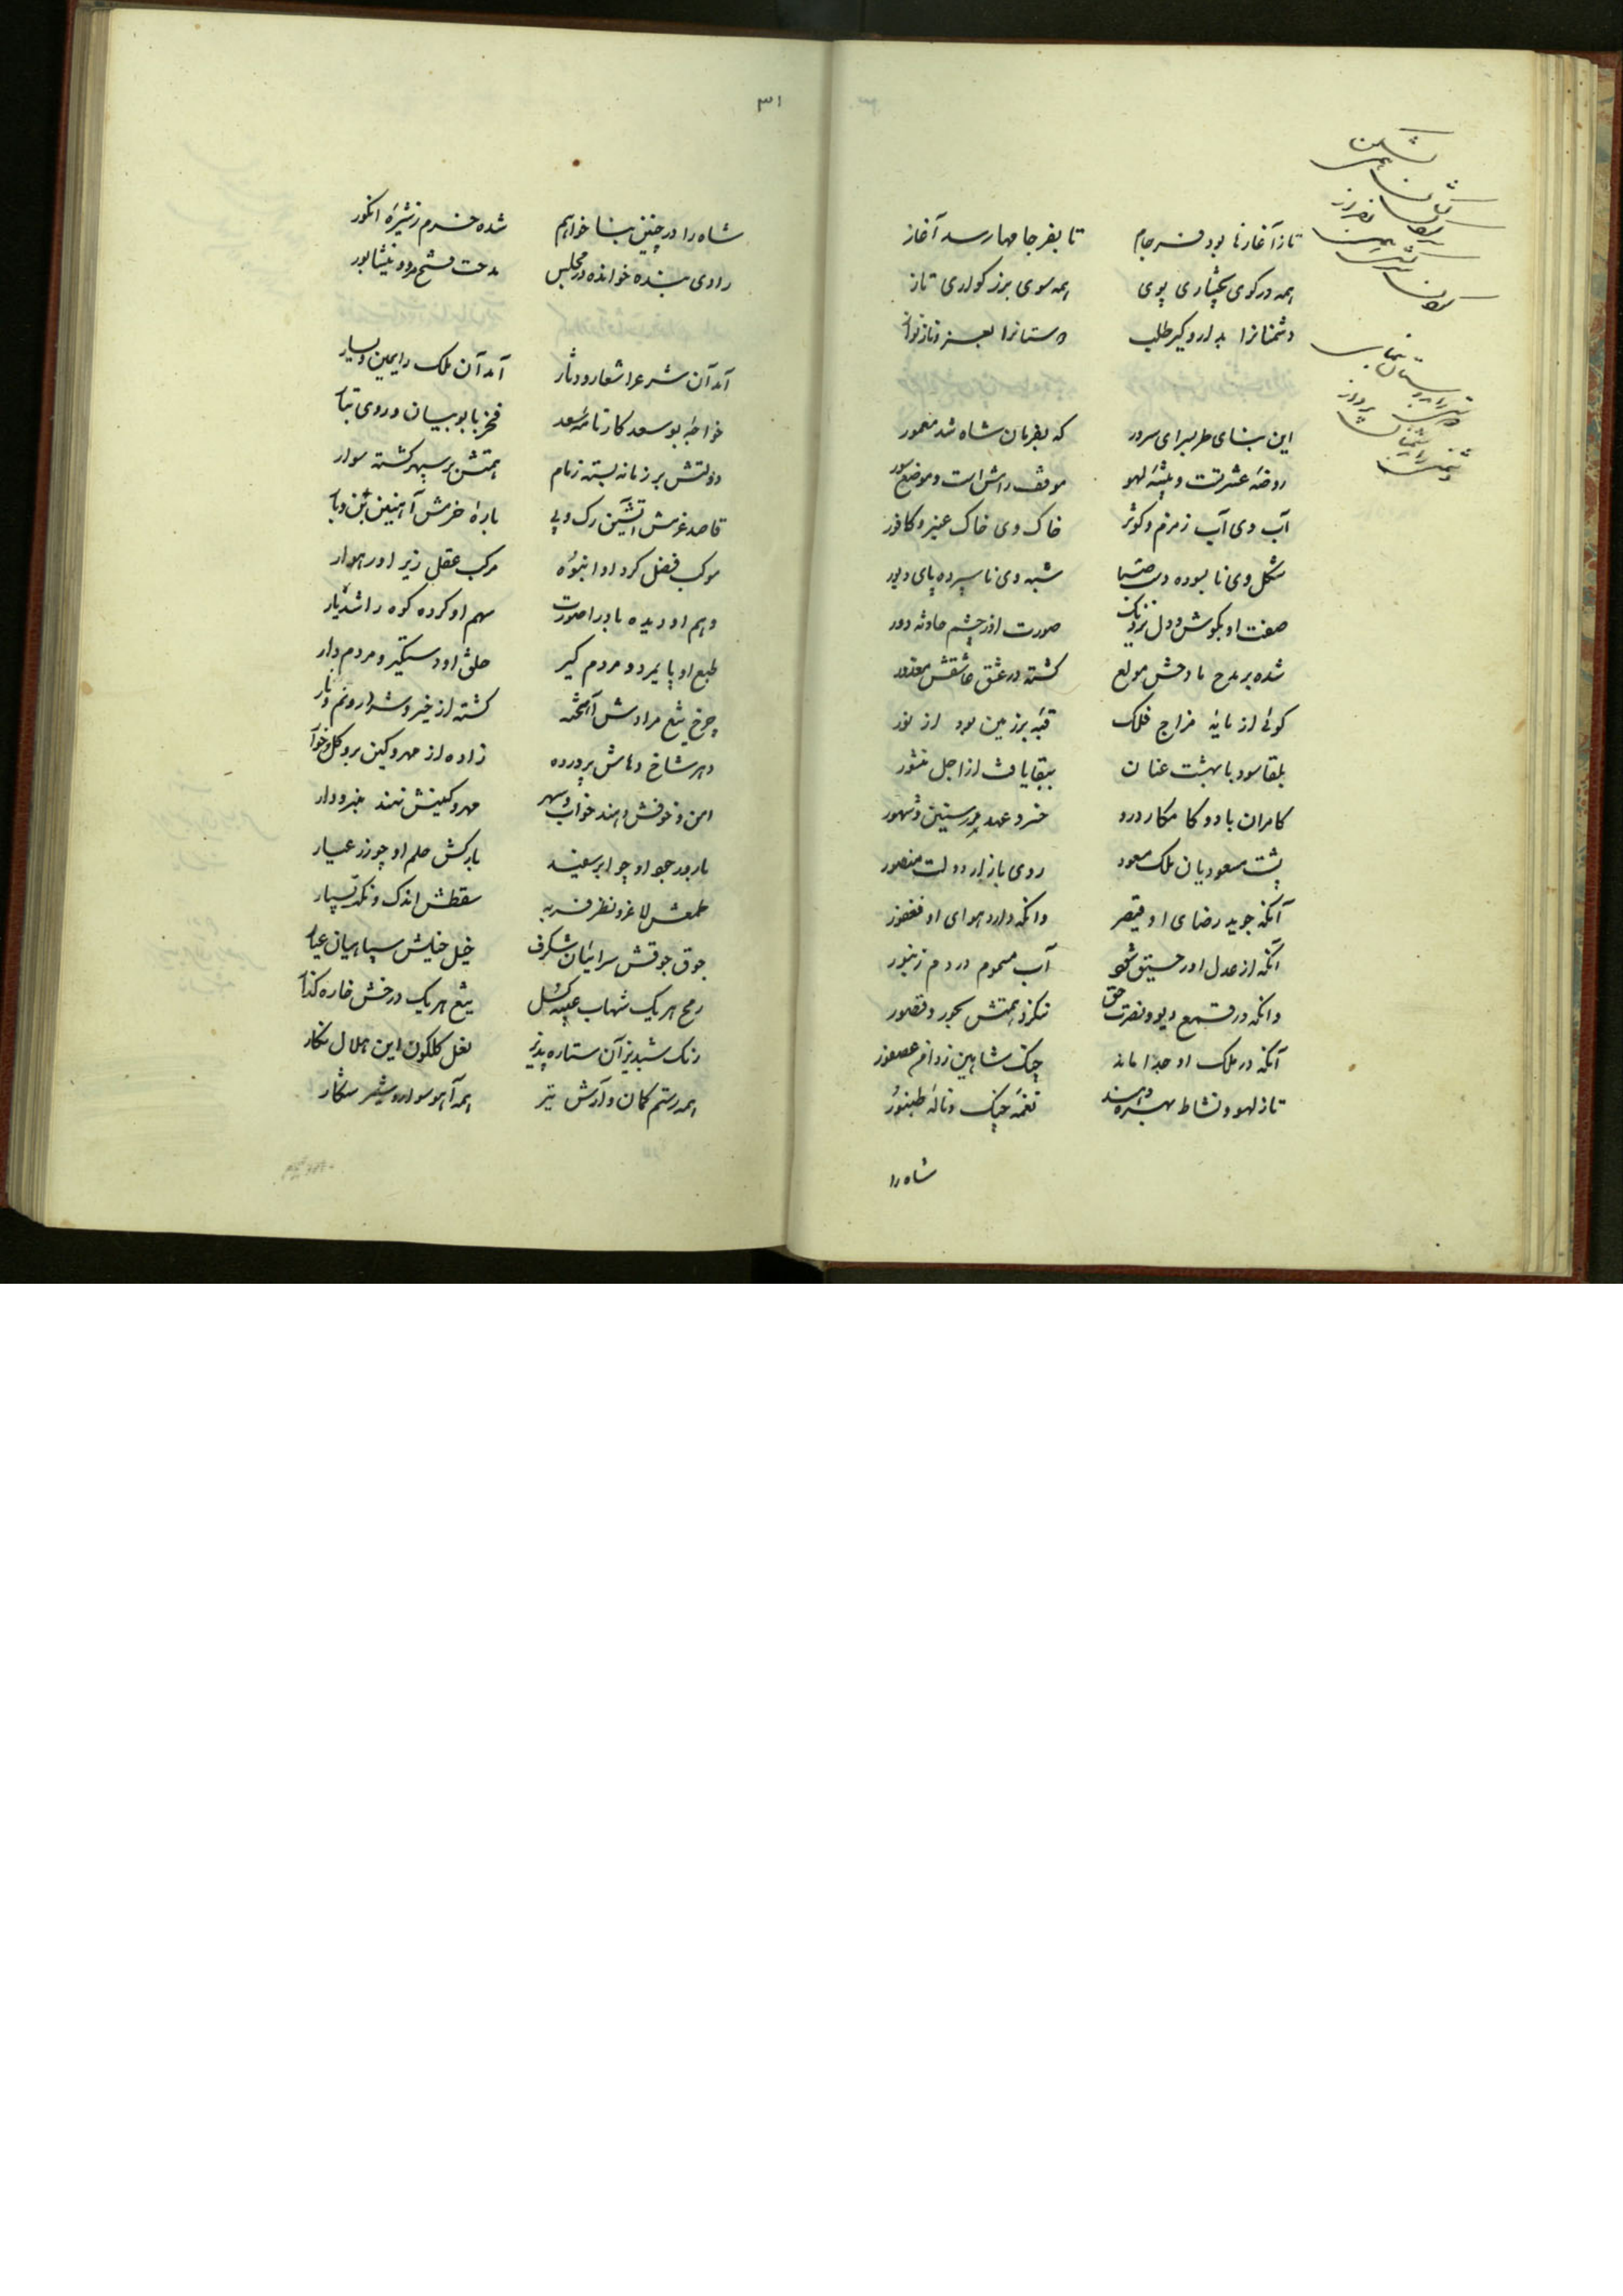 تا ز آغازها بود فرجام تا بفرجامها رسد آغاز
همه در کوی بختیاری پوی همه سوی بزرگواری تاز
دشمنانرا بدار و گیر طلب دوستانرا بعز و ناز نواز
این بنای طرب‌سرای سرور که بفرمان شاه شد معمور
روضه عشرتست و بیشه لهو موقف رامش است و موضع سور
آب وی آب زمزم و کوثر خاک وی خاک عنبر و کافور
شکل وی نابسوده دست صبا شبه وی ناسپرده پای دبور
صفت او بگوش و دل نزدیک صورت او ز چشم حادثه دور
شده بر مدح مادحش مولع گشته در عشق عاشقش معذور
گوئی از مایه مزاج فلک قبه بر زمین بود از نور
بلقا سود با بهشت عنان ببقا یافت از اجل منشور
کامران باد و کامکار درو خسرو عهد بر سنین و شهور
پشت مسعودیان ملک مسعود روی بازار دولت منصور
آنکه جوید رضای او قیصر وانکه دارد هوای او فغفور
آنکه از عدل او رحیق شود آب مسموم در دم زنبور
وانکه در قمع دیو و نصرت حق ننگرد همتش بحور و قصور
آنکه در ملک او جدا ماند چنگ شاهین ز دام عصفور
تا ز لهو و نشاط بهره دهند نغمه چنگ و ناله طنبور
شاه را
۳۱
شاه را در چنین بنا خواهم شده خرم ز شیره انگور
راوی بنده خوانده در مجلس مدحت فتح مرو و نیشابور
آمد آن شرع را شعار و دثار آمد آن ملک را یمین و یسار
خواجه بوسعد کارنامه سعد فخر بابویان و روی تبار
دولتش بر زمانه بسته زمام همتش بر سپهر گشته سوار
قاصد عزمش آتشین رگ و پی باره حزمش آهنین بن و بار
موکب فضل گرد او انبوه مرکب عقل زیر او رهوار
وهم او دیده باد را صورت سهم او کرده کوه را شدیار
طبع او پایمرد و مردم گیر خلق او دستگیر و مردم دار
چرخ تیغ مرادش آهخته گشته از خیر و شر او نم و نار
دهر شاخ دهاش پرورده زاده از مهر و کین برو گل و خار
امن و خوفش دهند خواب و سهر مهر و کینش نهند منبر و دار
بارور جود او چو ابر سفید بارکش حلم او چو زر عیار
طمعش لاغر و نظر فربه سقطش اندک و نکت بسیار
جوق جوقش سرائیان شگرف خیل خیلش سپاهیان عیار
رمح هر یک شهاب عیبه گسل تیغ هر یک درخش خاره گذار
رنگ شبدیز آن ستاره پدید نعل گلگون این هلال نگار
همه رستم کمان و آرش تیر همه آهو سوار و شیر شکار